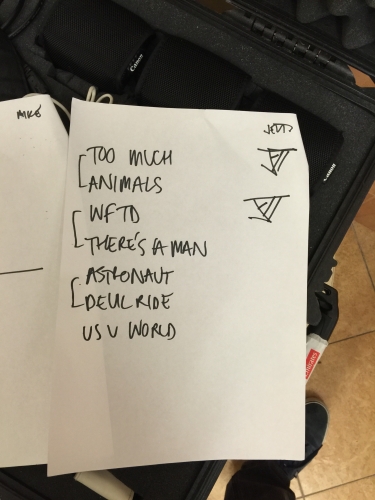 MIKE
TOO MUCH
ANIMALS
WFTD
THERE'S A MAN
ASTRONAUT
DEVIL RIDE
US V WORLD
Canon